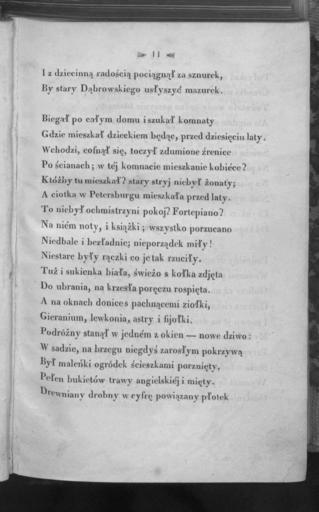 11
I z dziecinną radością pociągnął za sznurek,
By stary Dąbrowskiego usłyszyć mazurek.
Biegał po całym domu i szukał komnaty
Gdzie mieszkał dzieckiem będąc, przed dziesięciu laty.
Wchodzi, cofnął się, toczył zdumione źrenice
Po ścianach; w téj komnacie mieszkanie kobiéce?
Któżby tu mieszkał? stary stryj niebył żonaty;
A ciotka w Petersburgu mieszkała przed laty.
To niebył ochmistrzyni pokoj? Fortepiano?
Na niém noty, i książki; wszystko porzucano
Niedbale i bezładnie; nieporządek miły!
Niestare były rączki co je tak rzuciły.
Tuż i sukienka biała, świeżo s kołka zdjęta
Do ubrania, na krzesła poręczu rospięta.
A na oknach donices pachnącemi ziołki,
Gieranium, lewkonia, astry i fijołki.
Podróżny stanął w jedném z okien — nowe dziwo:
W sadzie, na brzegu niegdyś zarosłym pokrzywą
Był maleńki ogródek ścieszkami porznięty,
Pełen bukietów trawy angielskiéj i mięty.
Drewniany drobny w cyfrę powiązany płotek